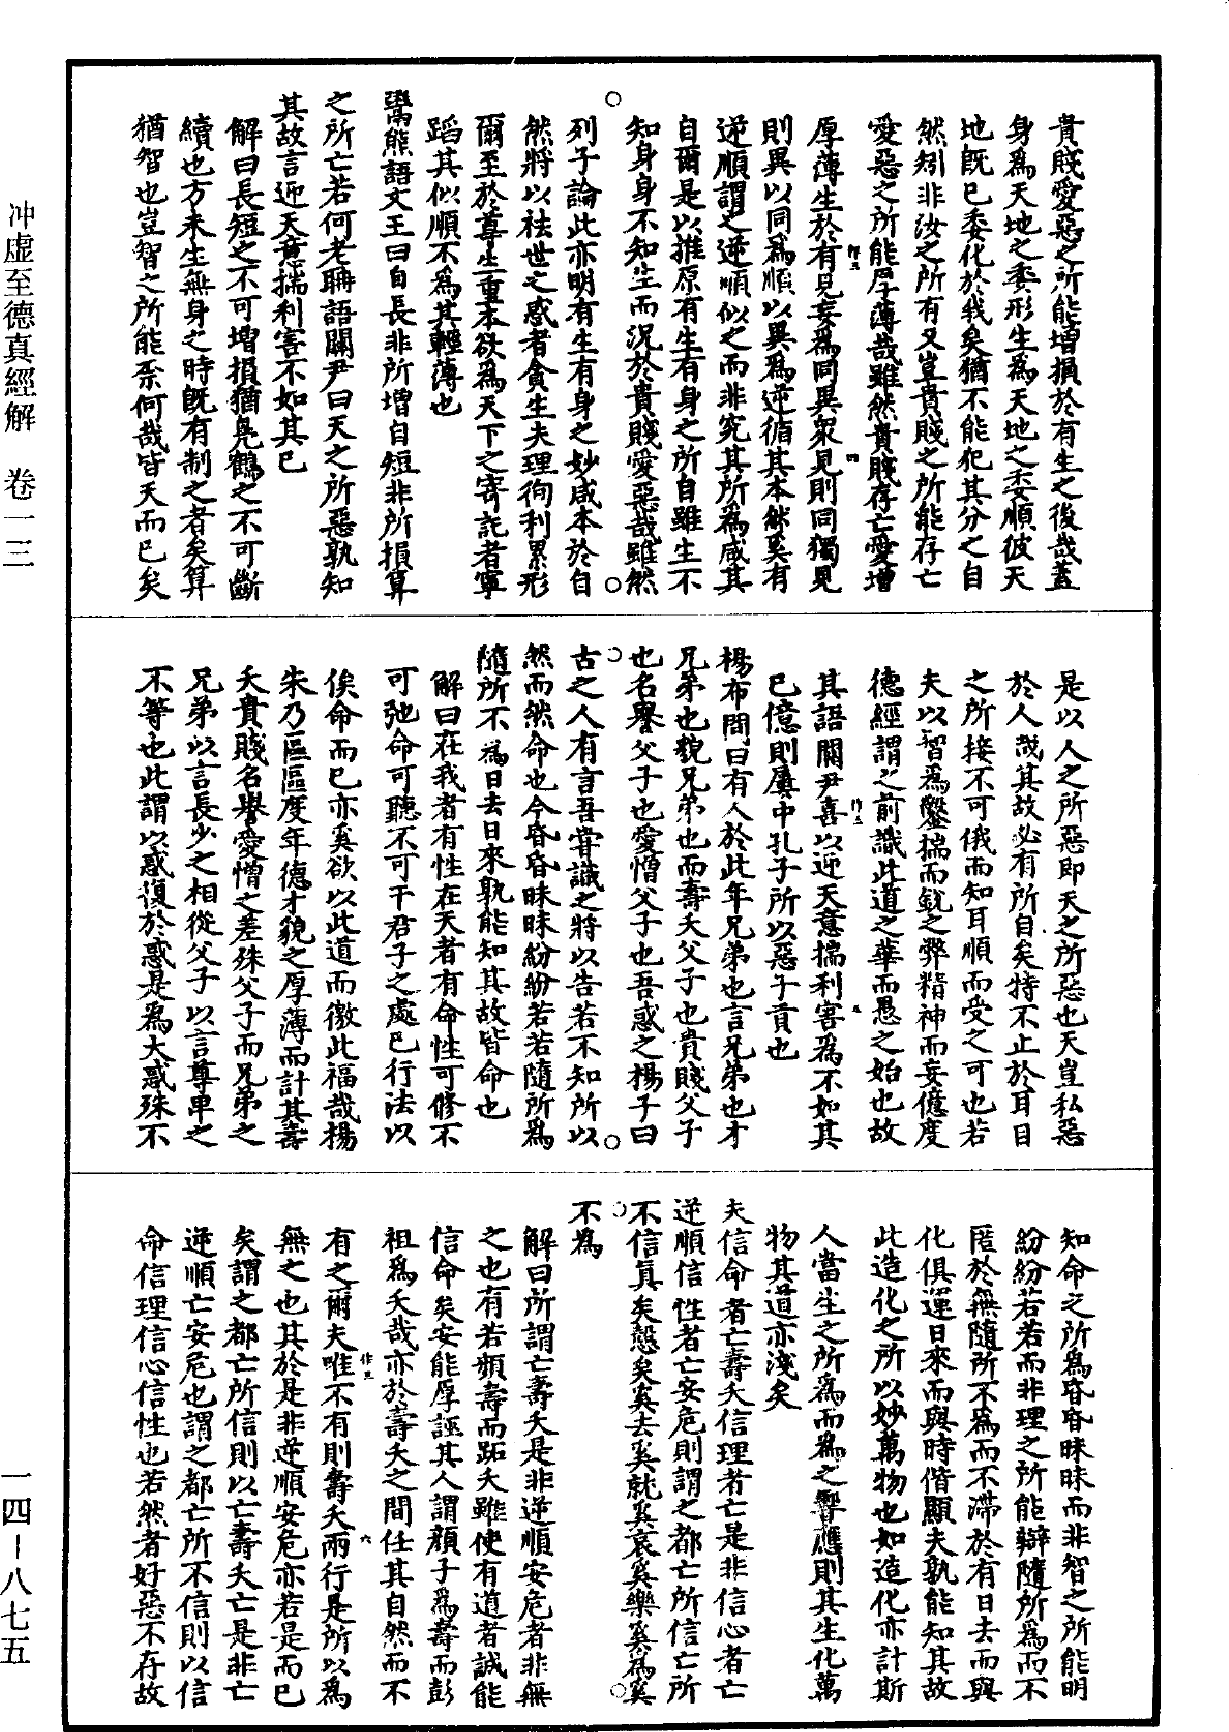 貴賤愛惡之所能增損於有生之後哉蓋
身爲天地之委形生爲天地之委順彼天
地旣已委化於我矣猶不能犯其分之自
然矧非汝之所有又豈貴賤之所能存亡
愛惡之所能厚薄哉雖然貴賤存亡愛增
厚薄生於有見妄爲同異衆見則同獨見
則異以同爲順以異爲逆循其本然奚有
逆順謂之逆順似之而非究其所爲咸其
自爾是以推原有生有身之所自雖生不
知身身不知生而況於貴賤愛惡哉雖然
列子論此亦明有生有身之妙咸本於自
然將以袪世之惑者貪生夫理徇利累形
爾至於尊生重本欲爲天下之寄託者寧
蹈其似順不爲其輕薄也
鬻熊語文王曰自長非所增自短非所損算
之所亡若何老聃語關尹曰天之所惡孰知
其故言迎天意揣利害不如其已
解曰長短之不可增損猶鳧鶴之不可斷
續也方未生無身之時旣有制之者矣算
猶智也豈智之所能柰何哉皆天而已矣
是以人之所惡即天之所惡也天豈私惡
於人哉其故必有所自矣特不止於耳目
之所接不可俄而知耳順而受之可也若
夫以智爲鑿揣而銳之弊精神而妄億度
德經謂之前識此道之華而愚之始也故
其語關尹喜以迎天意揣利害爲不如其
已億則屢中孔子所以惡子貢也
楊布問曰有人於此年兄弟也言兄弟也才
兄弟也貌兄弟也而壽夭父子也貴賤父子
也名譽父子也愛憎父子也吾惑之楊子曰
古之人有言吾嘗識之將以告若不知所以
然而然命也今昏昏昧昧紛紛若若隨所爲
隨所不爲日去日來孰能知其故皆命也
解曰在我者有性在天者有命性可修不
可弛命可聽不可干君子之處已行法以
俟命而已亦奚欲以此道而徼此福哉楊
朱乃區區度年德才貌之厚薄而計其壽
夭貴賤名譽愛憎之差殊父子而兄弟之
兄弟以言長少之相從父子以言尊卑之
不等也此謂以惑復於惑是爲大惑殊不
知命之所爲昏昏昧昧而非智之所能明
紛紛若若而非理之所能辯隨所爲而不
匿於無隨所不爲而不滯於有日去而與
化俱運日來而與時偕顯夫孰能知其故
此造化之所以妙萬物也如造化亦計斯
人當生之所爲而爲之響應則其生化萬
物其道亦淺矣
夫信命者亡壽夭信理者亡是非信心者亡
逆順信性者亡安危則謂之都亡所信亡所
不信眞矣慤矣奚去奚就奚哀奚樂奚爲奚
不爲
解曰所謂亡壽夭是非逆順安危者非無
之也有若顏壽而跖夭雖使有道者誠能
信命矣安能厚誣其人謂顏子爲壽而彭
祖爲夭哉亦於壽夭之間任其自然而不
有之爾夫唯不有則壽夭兩行是所以爲
無之也其於是非逆順安危亦若是而已
矣謂之都亡所信則以亡壽夭亡是非亡
逆順亡安危也謂之都亡所不信則以信
命信理信心信性也若然者好惡不存故
冲虛至德眞經解 卷一三
一四-八七五